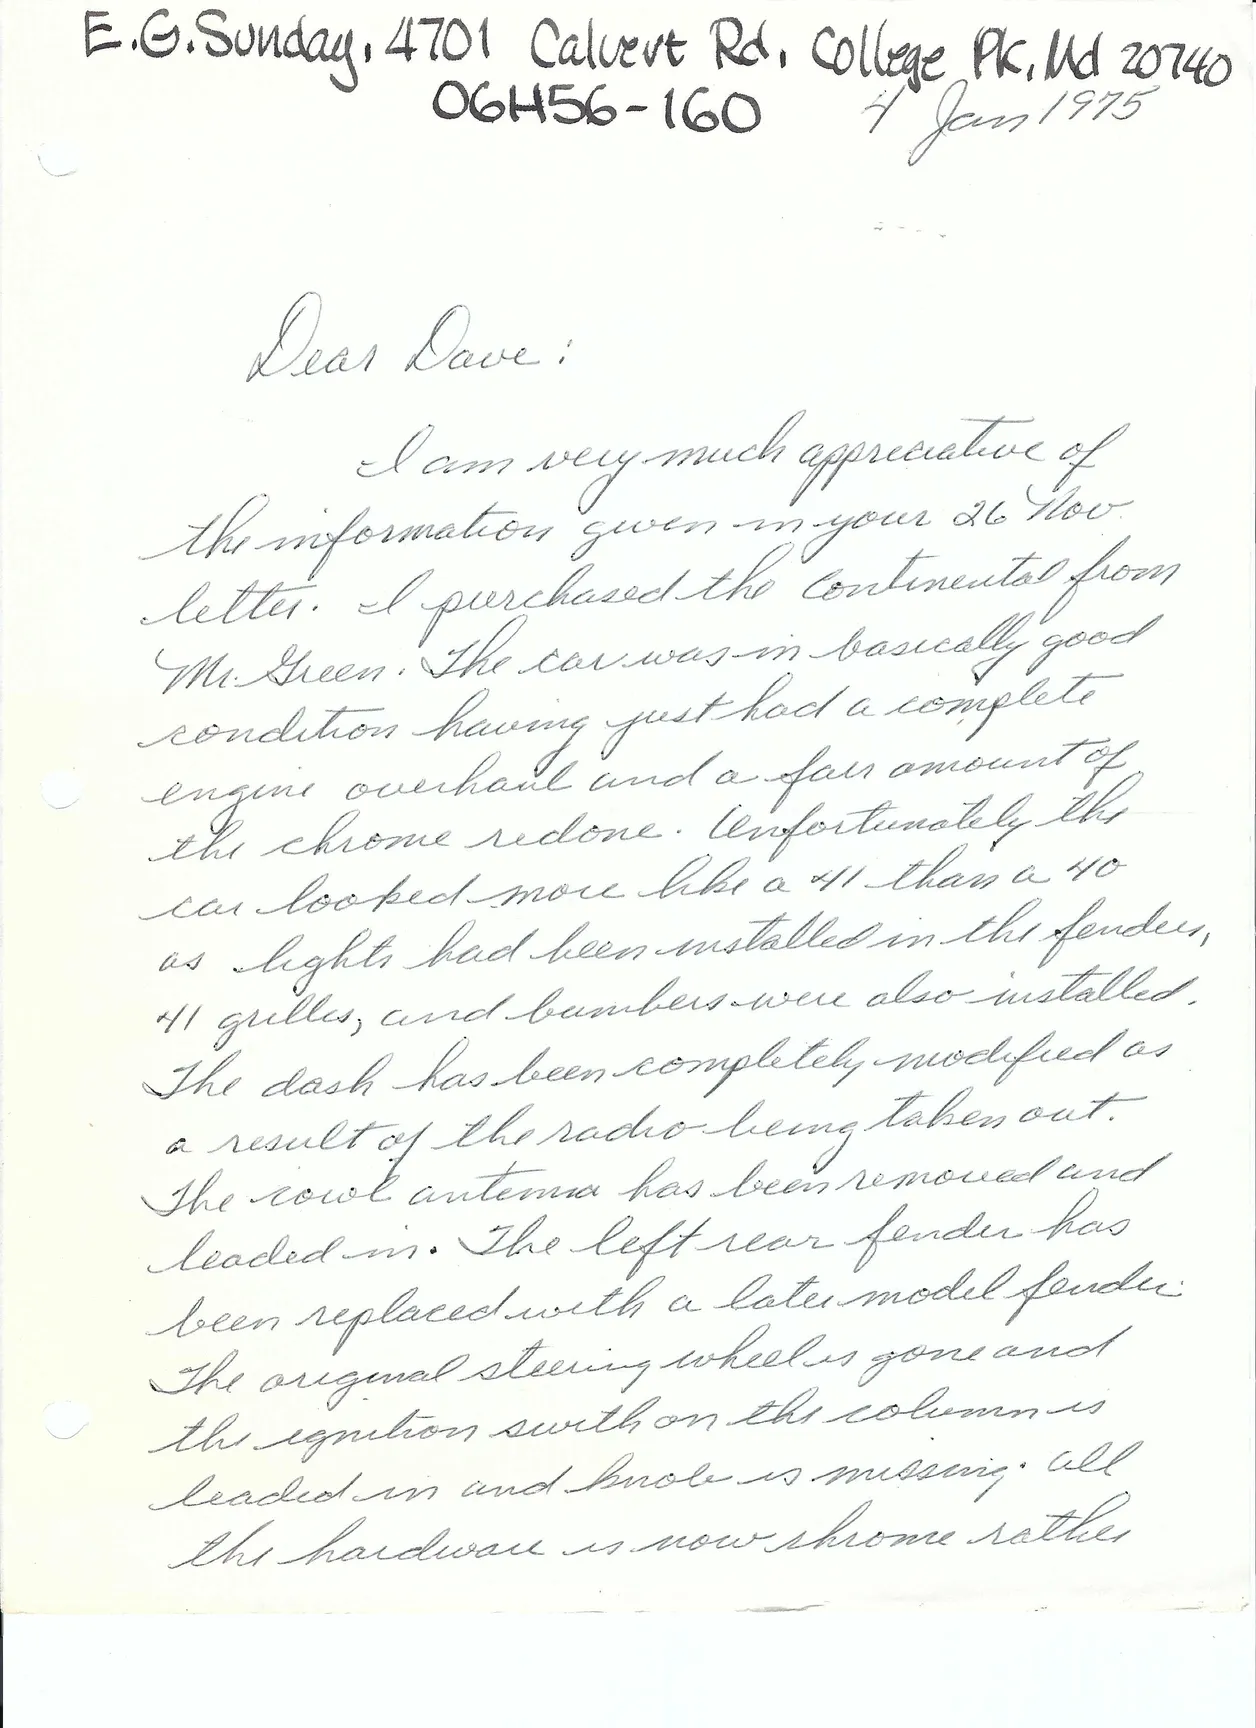 E.G. Sunday, 4701 Calvert Rd, College Pk, Md 20740
06H56-160
4 Jan 1975
Dear Dave:
I am very much appreciative of
the information given in your 26 Nov
letter. I purchased the Continental from
Mr. Green. The car was in basically good
condition having just had a complete
engine overhaul and a fair amount of
the chrome redone. Unfortunately the
car looked more like a 41 than a 40
as lights had been installed in the fenders,
41 grilles, and bumbers were also installed.
The dash has been completely modified as
a result of the radio being taken out.
The cowl antenna has been removed and
leaded in. The left rear fender has
been replaced with a later model fender.
The original steering wheel is gone and
the ignition swith on the column is
leaded in and knob is missing. All
the hardware is now chrome rather